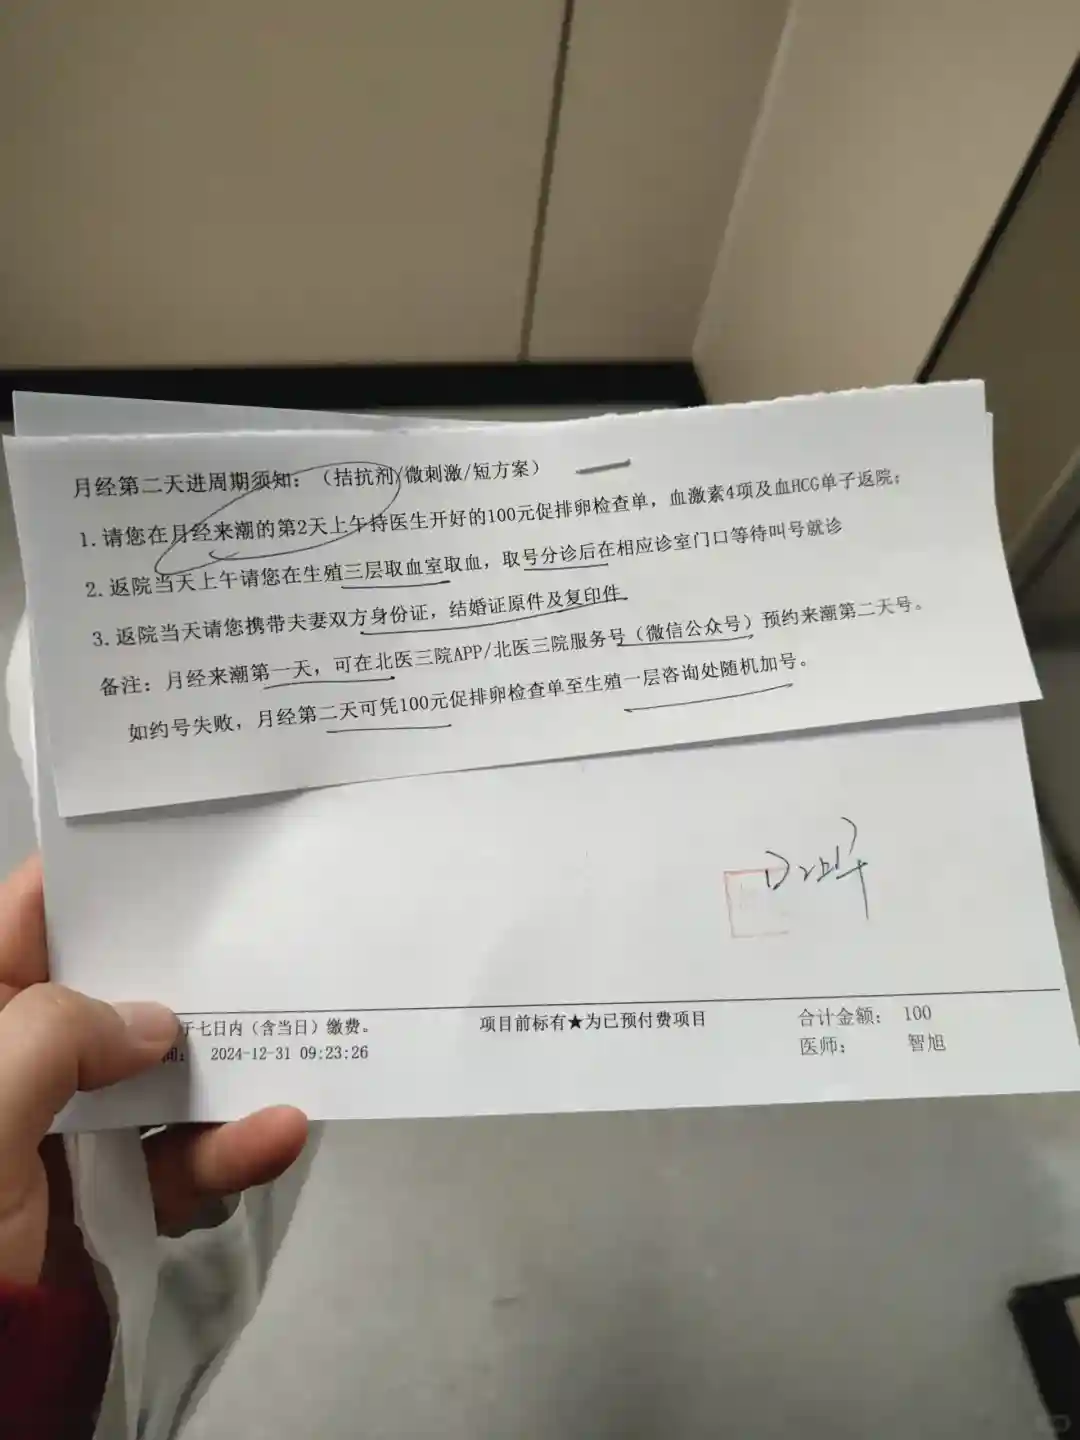 月经第二天进周期须知：（拮抗剂/微刺激/短方案）
1.请您在月经来潮的第2天上午持医生开好的100元促排卵检查单，血激素4项及血HCG单子返院；
2.返院当天上午请您在生殖三层取血室取血，取号分诊后在相应诊室门口等待叫号就诊
3.返院当天请您携带夫妻双方身份证，结婚证原件及复印件
备注：月经来潮第一天，可在北医三院APP/北医三院服务号（微信公众号）预约来潮第二天号。
如约号失败，月经第二天可凭100元促排卵检查单至生殖一层咨询处随机加号。
D2上午
于七日内（含当日）缴费。 项目前标有★为已预付费项目 合计金额： 100
间： 2024-12-31 09:23:26 医师： 智旭